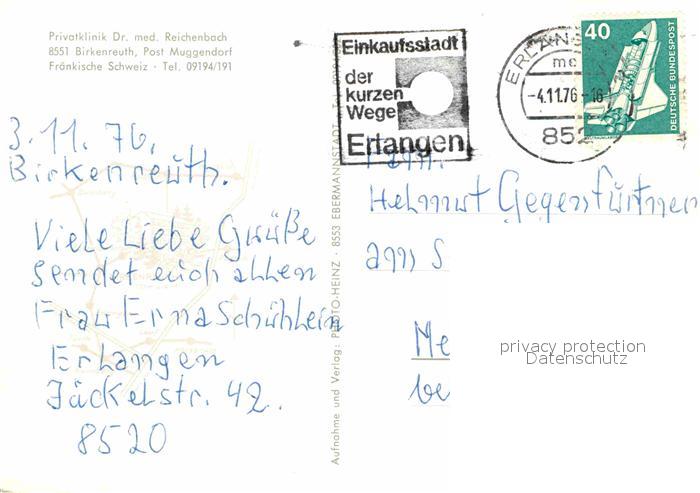 Privatklinik Dr. med. Reichenbach
8551 Birkenreuth, Post Muggendorf
Fränkische Schweiz · Tel. 09194/191
3.11.76.
Birkenreuth.
Viele Liebe Grüße
sendet euch allen
Frau Erna Schühlein
Erlangen
Jäckelstr. 42.
8520
Aufnahme und Verlag: PHOTO-HEINZ · 8553 EBERMANNSTADT
Einkaufsstadt
der
kurzen
Wege
Erlangen
ERLANGEN
-4.11.76-16
852
40
DEUTSCHE BUNDESPOST
Fam.
Helmut Gegenfürtner
Me
be
privacy protection
Datenschutz